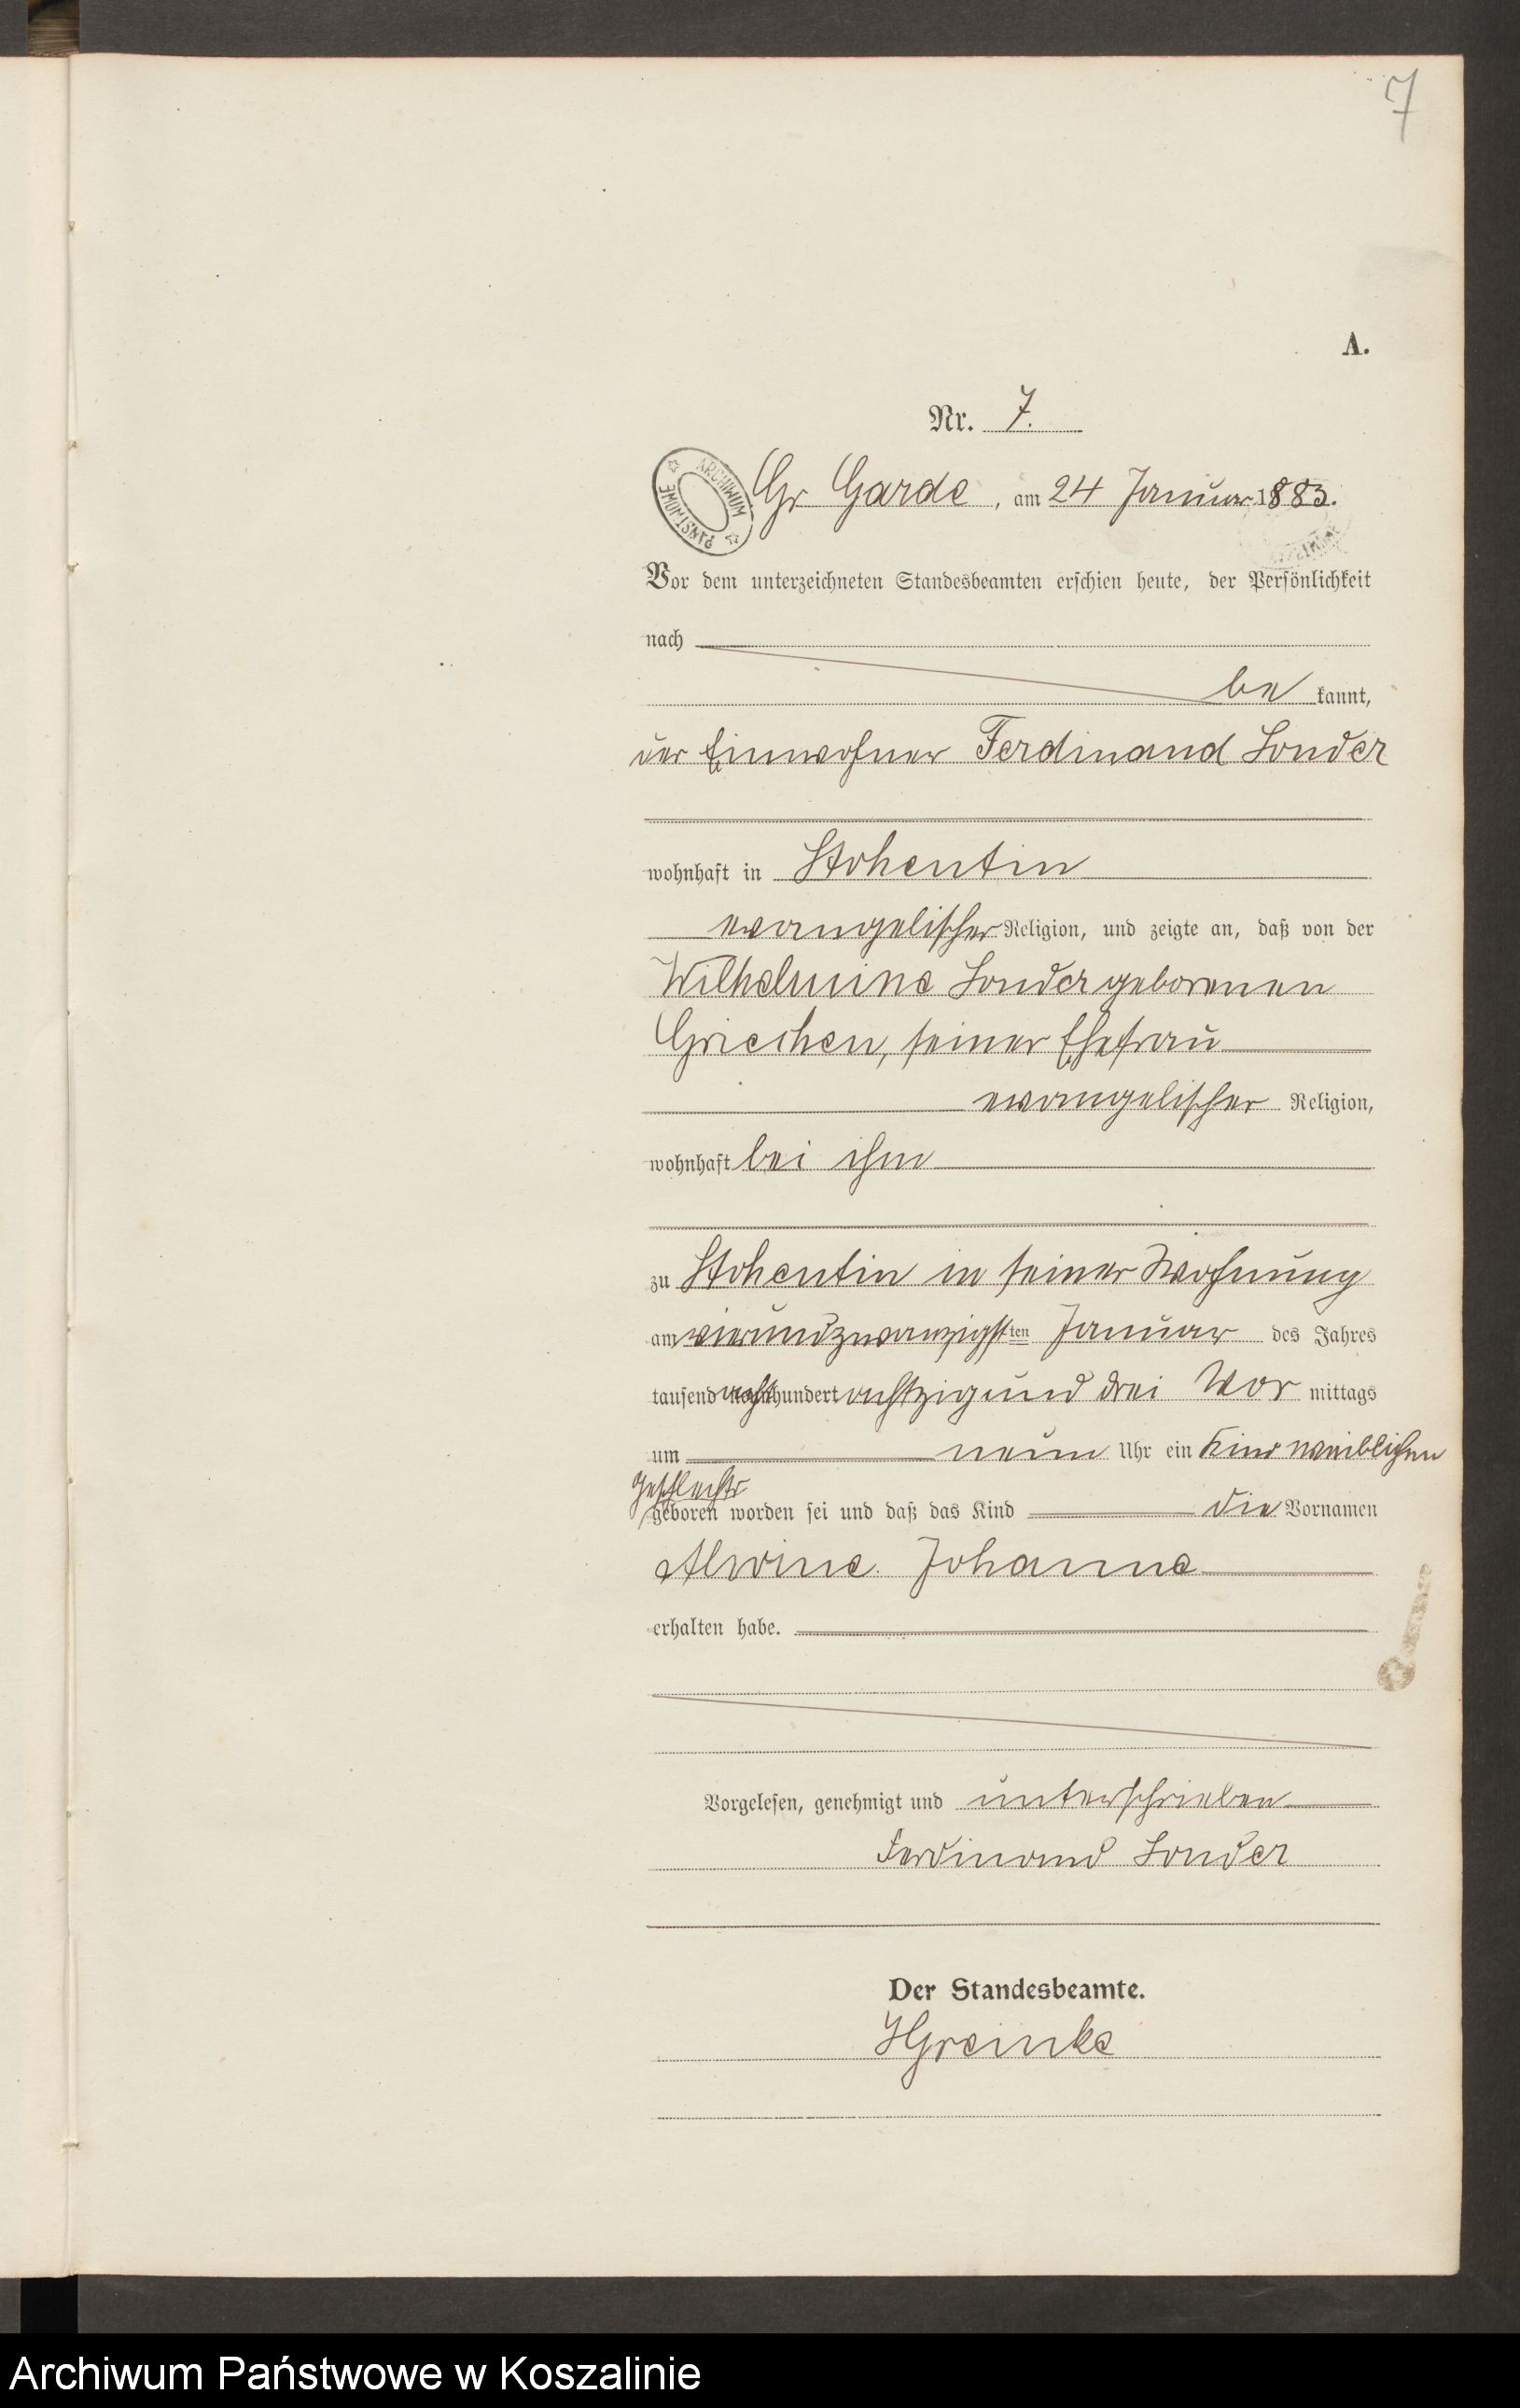 7
A.
Nr. 7.
ARCHIWUM PAŃSTWOWE
Gr Garde, am 24 Januar 1883.
Vor dem unterzeichneten Standesbeamten erschien heute, der Persönlichkeit
nach
be kannt,
der Einwohner Ferdinand Londer
wohnhaft in Stohentin
evangelischer Religion, und zeigte an, daß von der
Wilhelmine Londer geborenen
Griechen, seiner Ehefrau
evangelischer Religion,
wohnhaft bei ihm
zu Stohentin in seiner Wohnung
am vierundzwanzigsten Januar des Jahres
tausend acht hundert achtzig und drei Vor mittags
um neun Uhr ein Kind weiblichen
Geschlechts
geboren worden sei und daß das Kind die Vornamen
Alwine Johanne
erhalten habe.
Vorgelesen, genehmigt und unterschrieben
Ferdinand Londer
Der Standesbeamte.
HGreinke
Archiwum Państwowe w Koszalinie